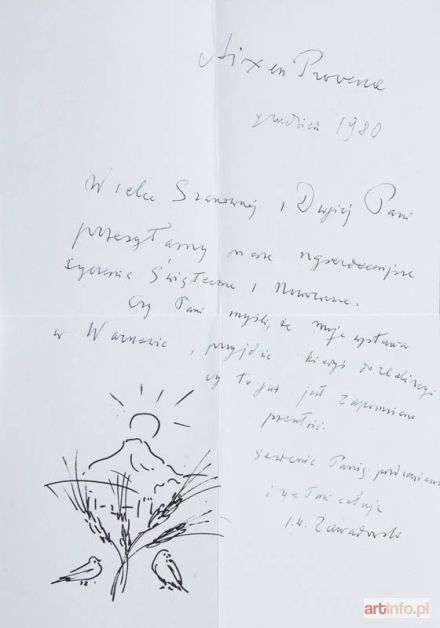 Aix en Provence
grudzień 1980
Wielce Szanownej i Drogiej Pani
przesyłamy nasze najserdeczniejsze
życzenia Świąteczne i Noworoczne.
Czy Pani myśli, że moja wystawa
w Warszawie, przyjdzie kiedyś do realizacji
czy to już jest zapomniana
przeszłość.
Serdecznie Panią pozdrawiam
i rączki całuję
Zawadowski
artinfo.pl